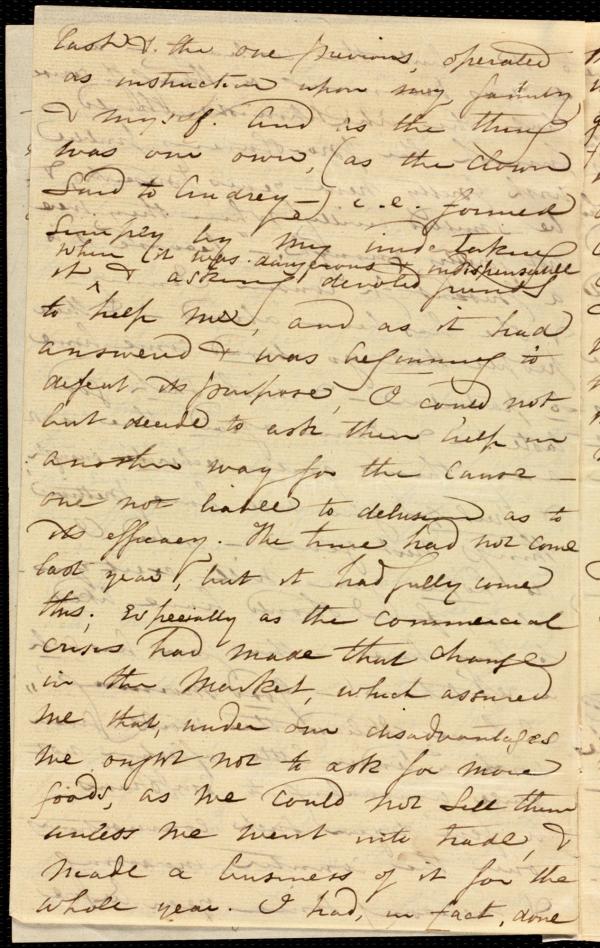 last & the one previous, operated
as instruction upon my family
& myself. And as the thing
was our own, (as the clown
said to Audrey—) i.e. formed
simply by my undertaking
when it was dangerous & indispensable
it & asking devoted friends
to help me, and as it had
answered & was beginning to
defeat its purpose, I could not
but decide to ask their help in
another way for the cause —
one not liable to delusion as to
its efficacy. The time had not come
last year, but it had fully come
this; especially as the commercial
crisis had made that change
in the market, which assured
me that, under our disadvantages
we ought not to ask for more
goods, as we could not sell them
unless we went into trade, &
made a business of it for the
whole year. I had, in fact, done